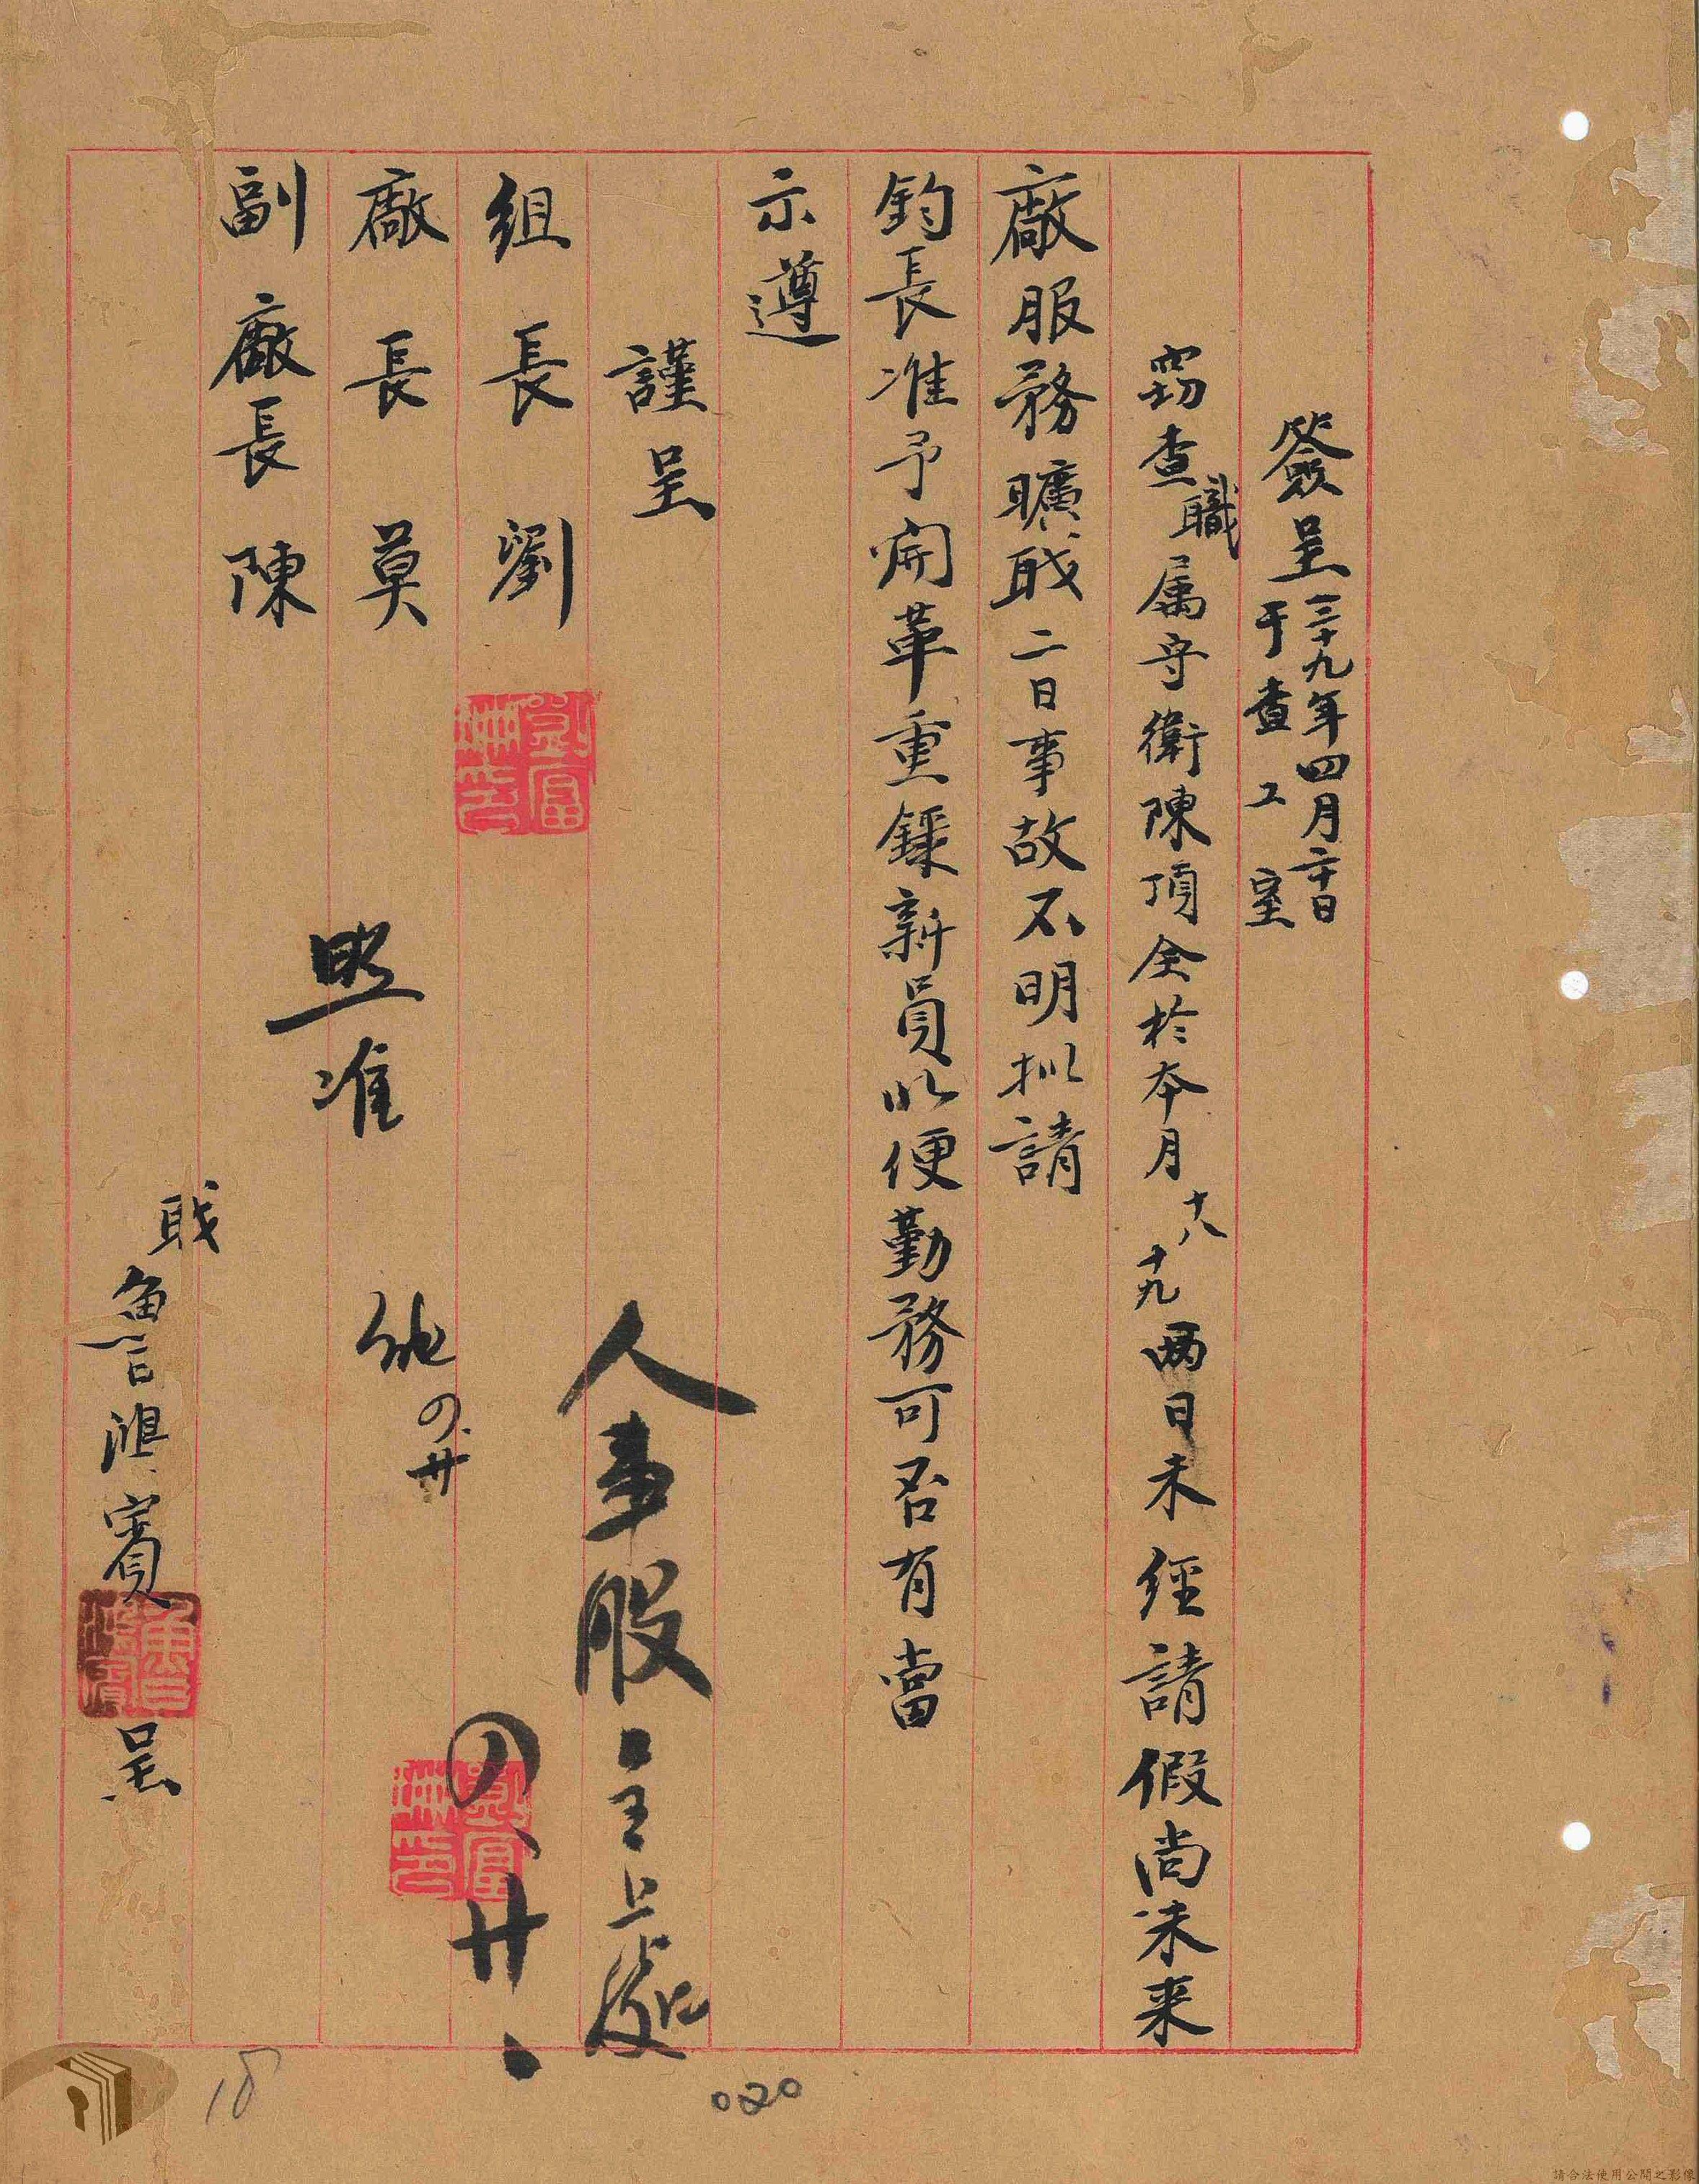 簽呈 三十九年四月二十日
于查工室
竊查職属守衛陳頂全於本月十八十九兩日未經請假尚未来
廠服務曠戝二日事故不明拟請
鈞長准予開革重錄新員以便勤務可否有當
示遵
謹呈
組長劉
廠長莫
副廠長陳
照准
四.廿
人事股主辦
四、廿、
戝魯鴻賓呈
18
020
請合法使用公開之影像